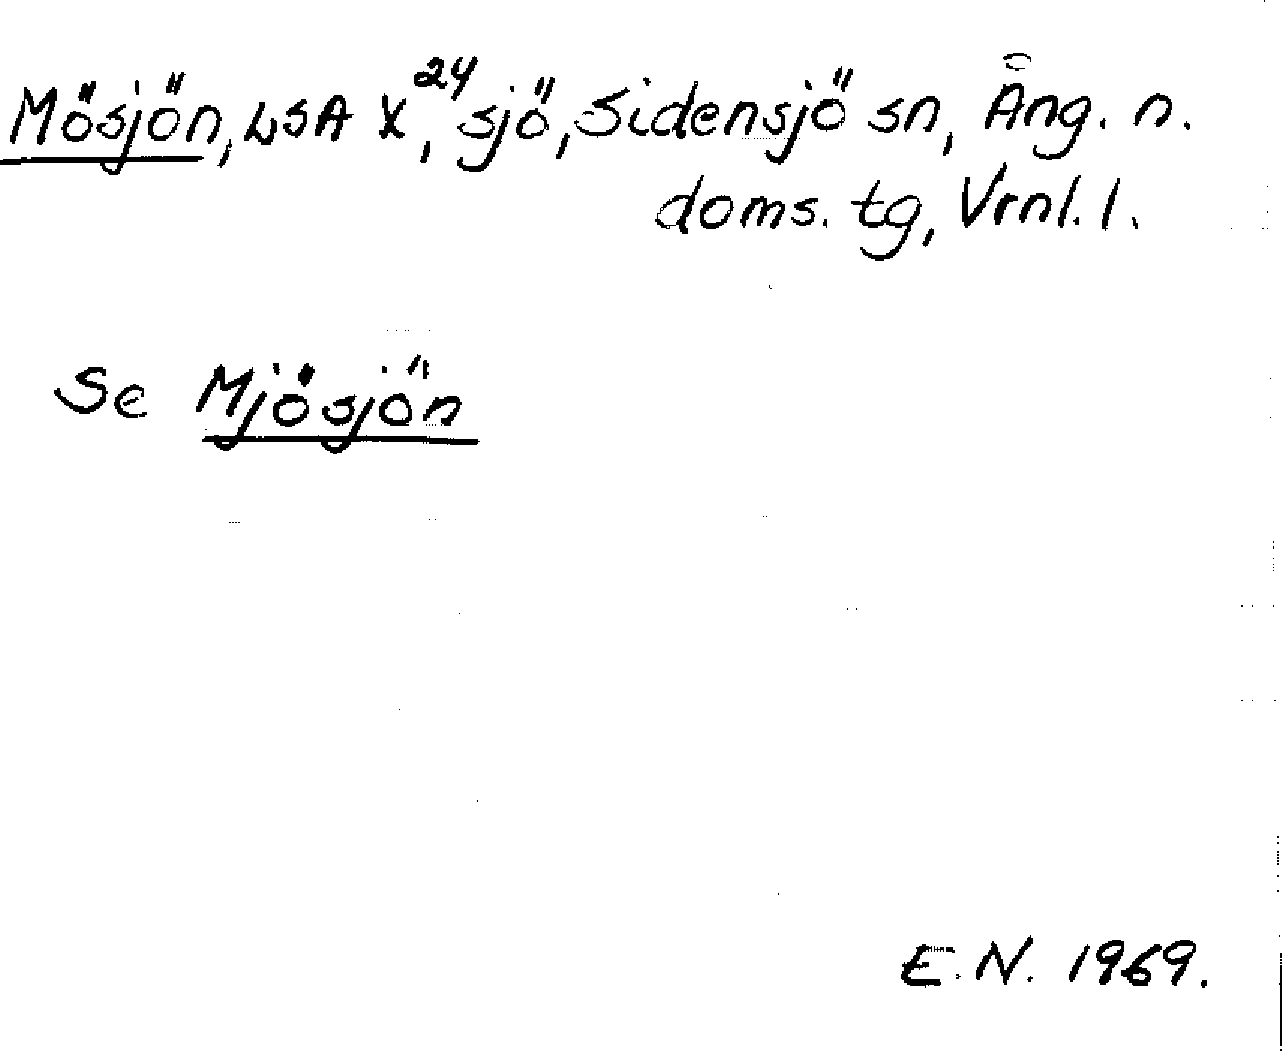 Mösjön, LSA X²⁴, sjö, Sidensjö sn, Ång. n.
doms. tg, Vrnl. l.
Se Mjösjön
E. N. 1969.